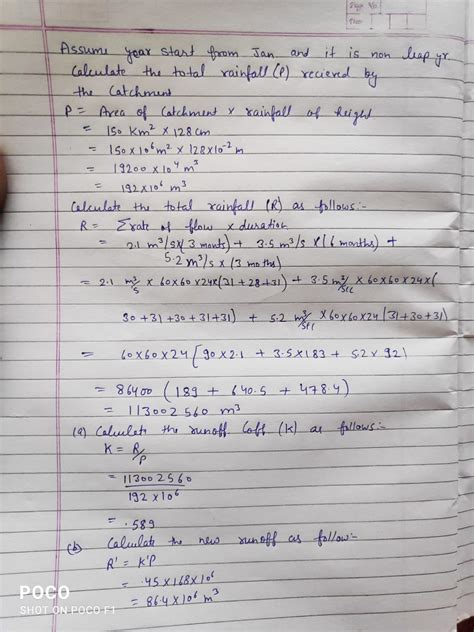 Assume year start from Jan. and it is non leap yr.
Calculate the total rainfall (P) recieved by
the Catchment
P = Area of Catchment × rainfall of height
= 150 Km² × 128 cm
= 150 × 10⁶ m² × 128 × 10⁻² m
= 19200 × 10⁴ m³
= 192 × 10⁶ m³
Calculate the total rainfall (R) as follows:-
R = Σ rate of flow × duration
= 2.1 m³/s × (3 monts) + 3.5 m³/s × (6 months) +
5.2 m³/s × (3 moths)
= 2.1 m³/s × 60×60×24×(31+28+31) + 3.5 m³/sec × 60×60×24×(
30+31+30+31+31) + 5.2 m³/sec × 60×60×24 (31+30+31)
= 60×60×24 [90×2.1 + 3.5×183 + 5.2×92]
= 86400 (189 + 640.5 + 478.4)
= 113002560 m³
(a) Calculate the runoff Coff (K) as follows:-
K = R/P
= 113002560
192 × 10⁶
= .589
(b) Calculate the new runoff as follow:-
R' = K'P
= .45×168×10⁶
= 86.4 × 10⁶ m³
POCO
SHOT ON POCO F1